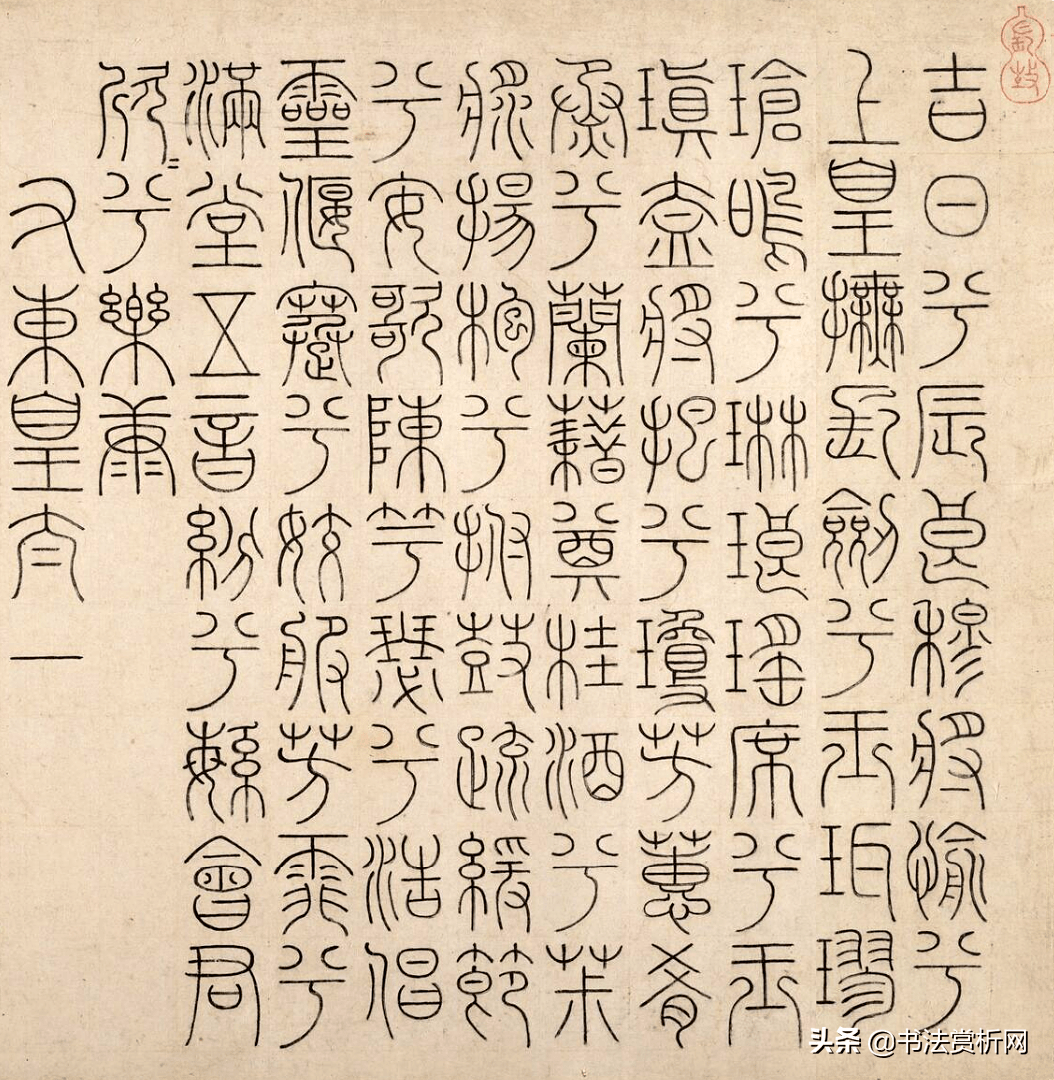 吉日兮辰良穆將愉兮
上皇撫長劍兮玉珥璆
瑲鳴兮琳琅瑤席兮玉
瑱盍將把兮瓊芳蕙肴
烝兮蘭藉奠桂酒兮茮
漿揚枹兮拊鼓疏緩節
兮安歌陳竽瑟兮浩倡
靈偃蹇兮姣服芳菲兮
滿堂五音紛兮繁會君
欣=兮樂康
又東皇太一
头条 @书法赏析网